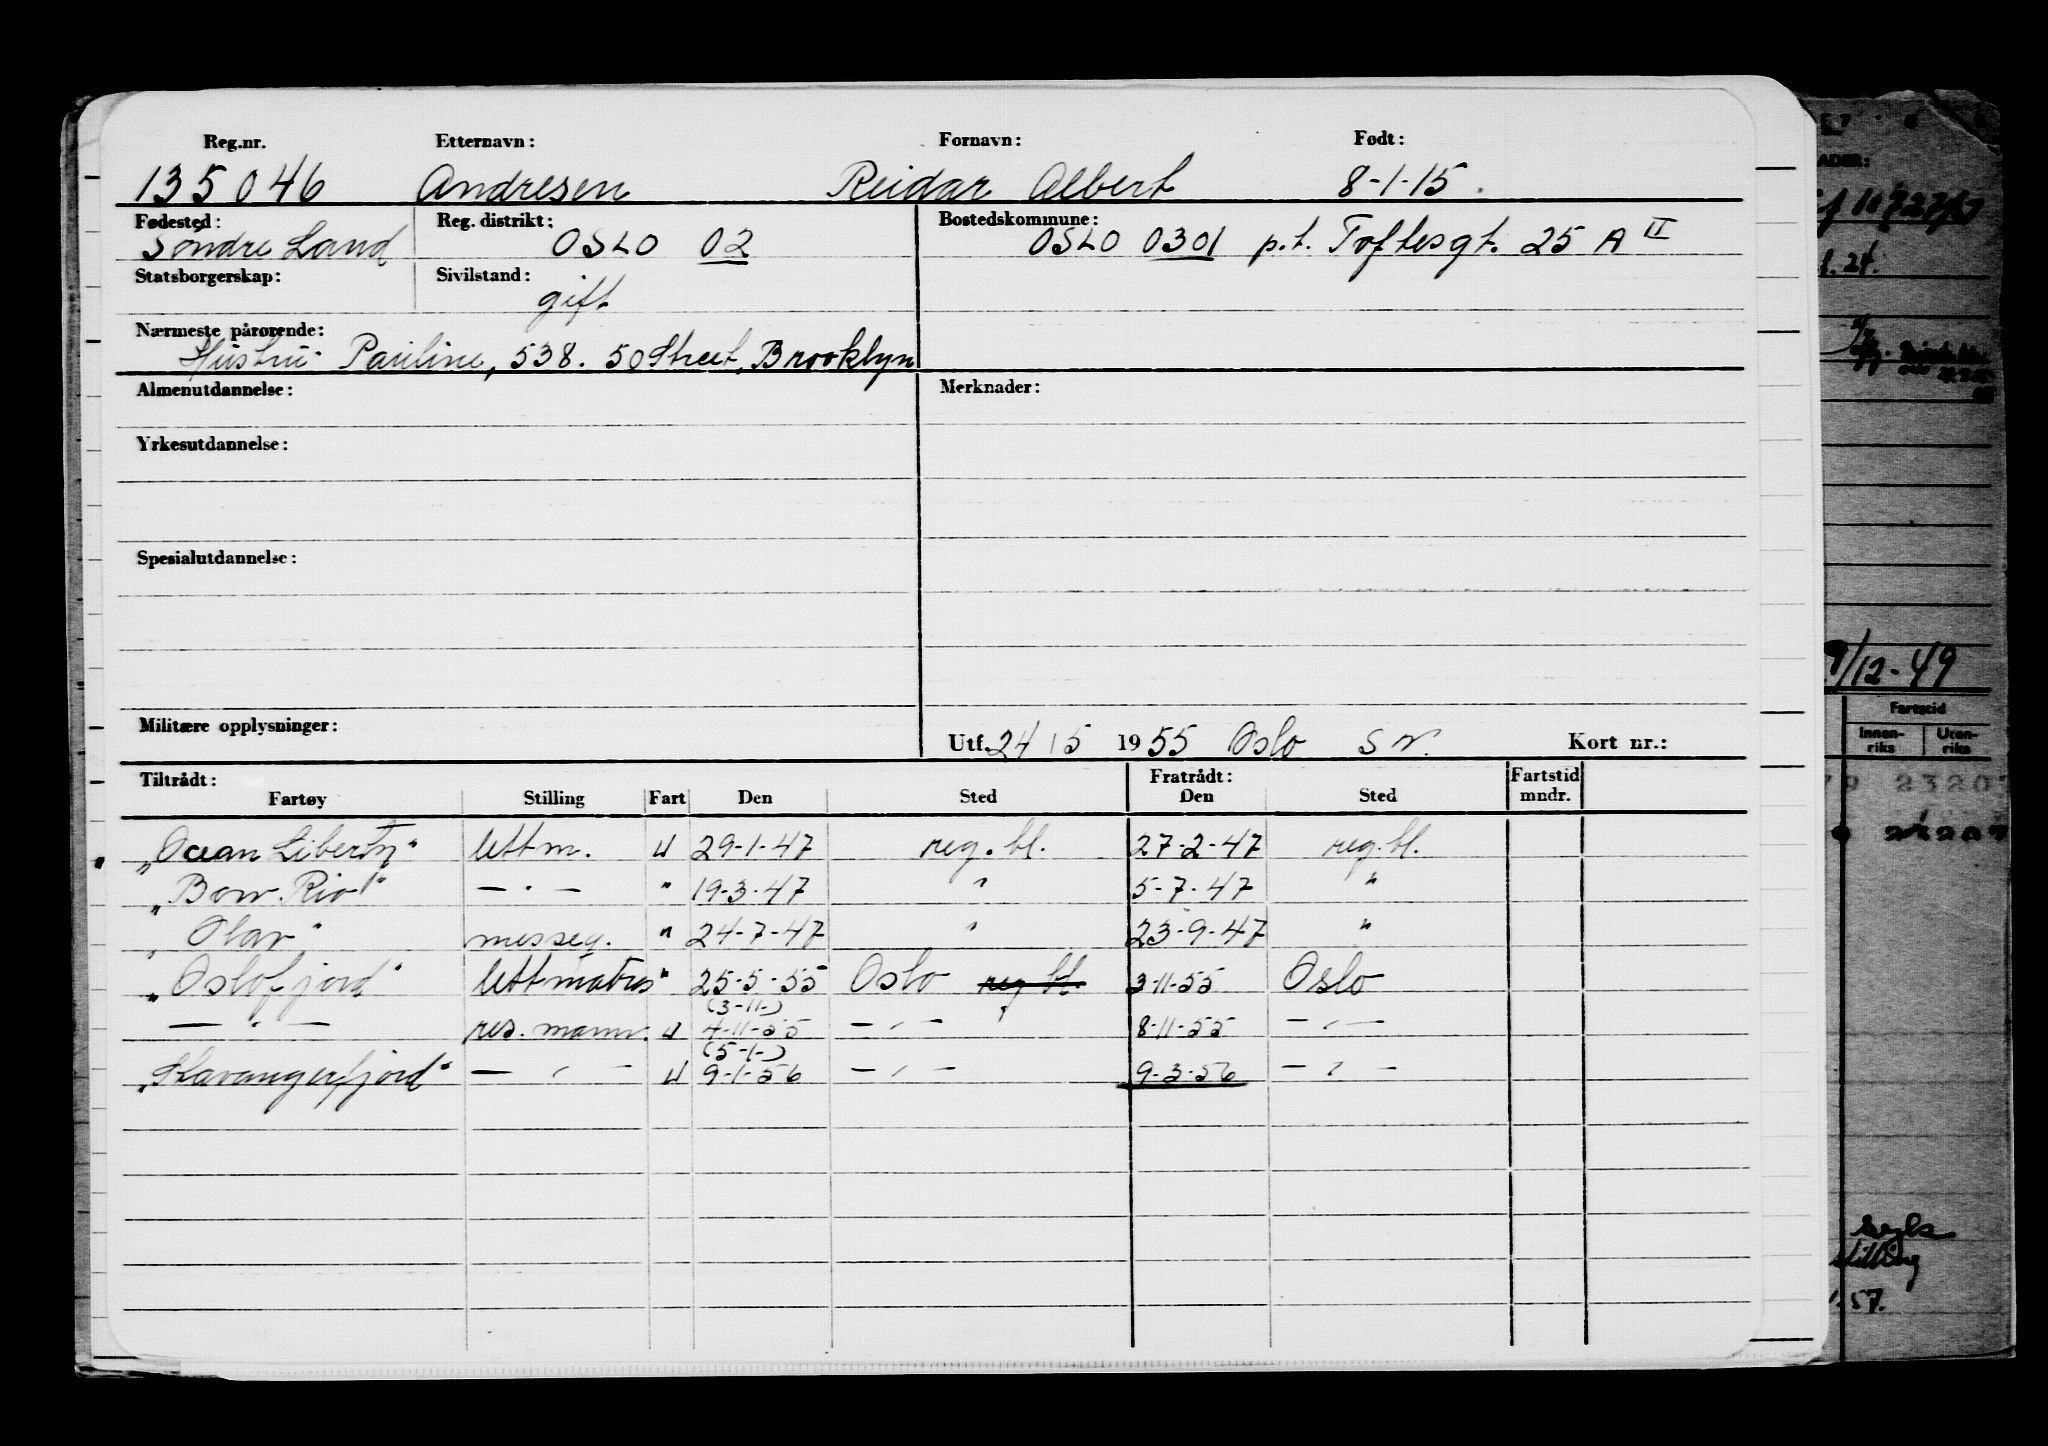 Reg.nr. Etternavn: Fornavn: Født:
135046 Andresen Reidar Albert 8-1-15.
Fødested: Reg. distrikt: Bostedskommune:
Söndre Land OSLO 02 OSLO 0301 p.t. Toftesgt. 25 A II
Statsborgerskap: Sivilstand:
gift
Nærmeste pårørende:
Hustru Pauline, 538. 50 Street, Brooklyn
Almenutdannelse: Merknader:
Yrkesutdannelse:
Spesialutdannelse:
Militære opplysninger:
Utf. 24 15 1955 Oslo S N. Kort nr.:
Tiltrådt: Fratrådt: Fartstid
Fartøy Stilling Fart Den Sted Den Sted mndr.
„Ocean Liberty" lettm. U 29-1-47 reg. bl. 27-2-47 reg. bl.
„Bow. Rio" — " — " 19-3-47 " 5-7-47 "
„Olav" messeg. " 24-7-47 " 23-9-47 "
„Oslofjord" lettmatros " 25-5-55 Oslo reg bl. 3-11-55 Oslo
(3-11-)
— " — res. mann. U 4-11-55 — " — 8-11-55 — " —
(5-1-)
„Stavangerfjord" — " — U 9-1-56 — " — 9-3-56 — " —
f. 24.
9/12-49
Fartstid
Innen-
riks
Uten-
riks
2320
stilling
57.